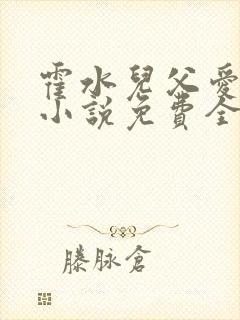 霍水兒父愛
小說免費全
滕脉倉